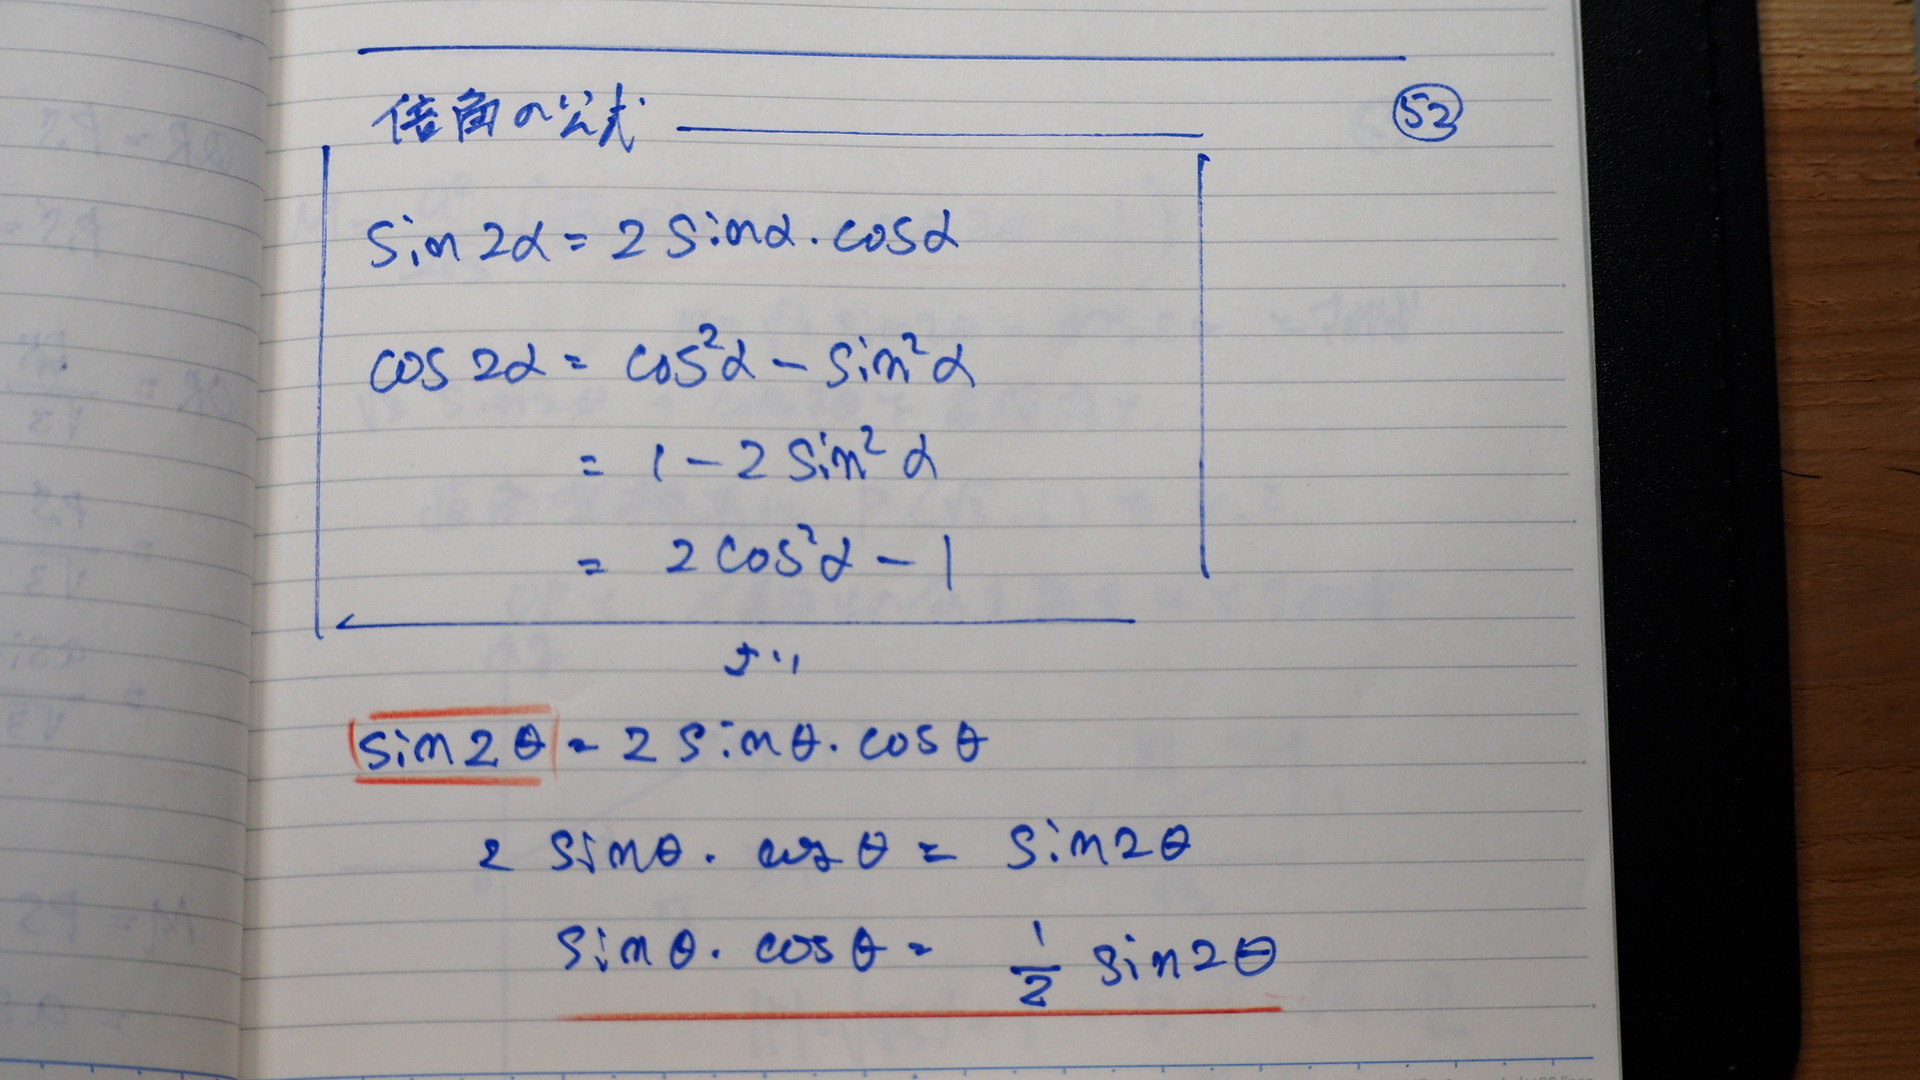 倍角の公式
52
sin2α = 2sinα・cosα
cos2α = cos²α − sin²α
= 1 − 2sin²α
= 2cos²α − 1
より
sin2θ = 2sinθ・cosθ
2sinθ・cosθ = sin2θ
sinθ・cosθ = 1/2 sin2θ